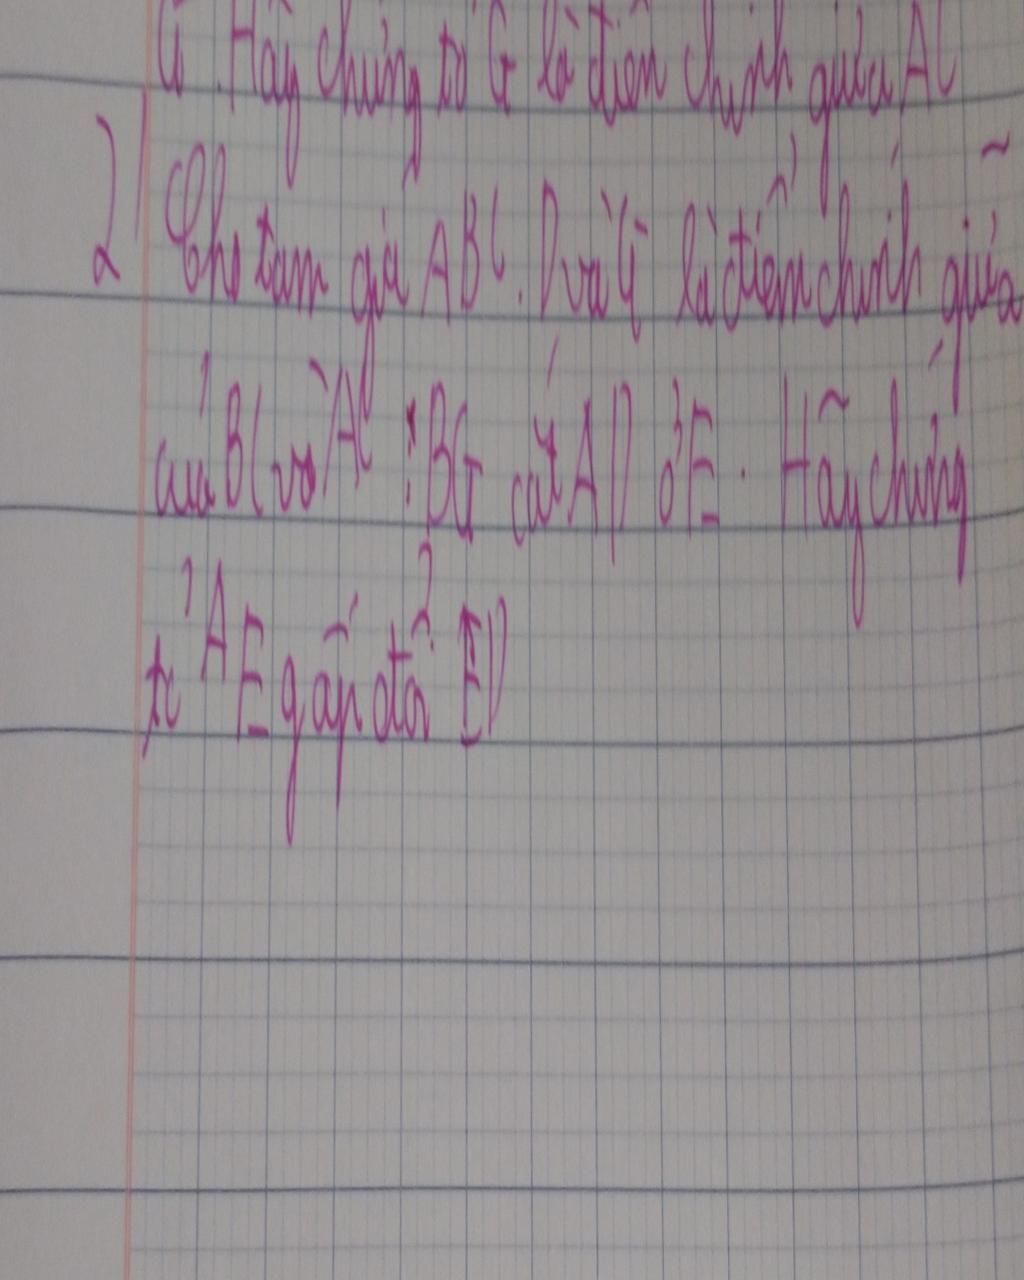 G. Hãy chứng tỏ G là điểm chính giữa AC
2) Cho tam giá ABC. D và G là điểm chính giữa
của BC và AC; BG cắt AD ở E. Hãy chứng
tỏ AE gấp đôi ED